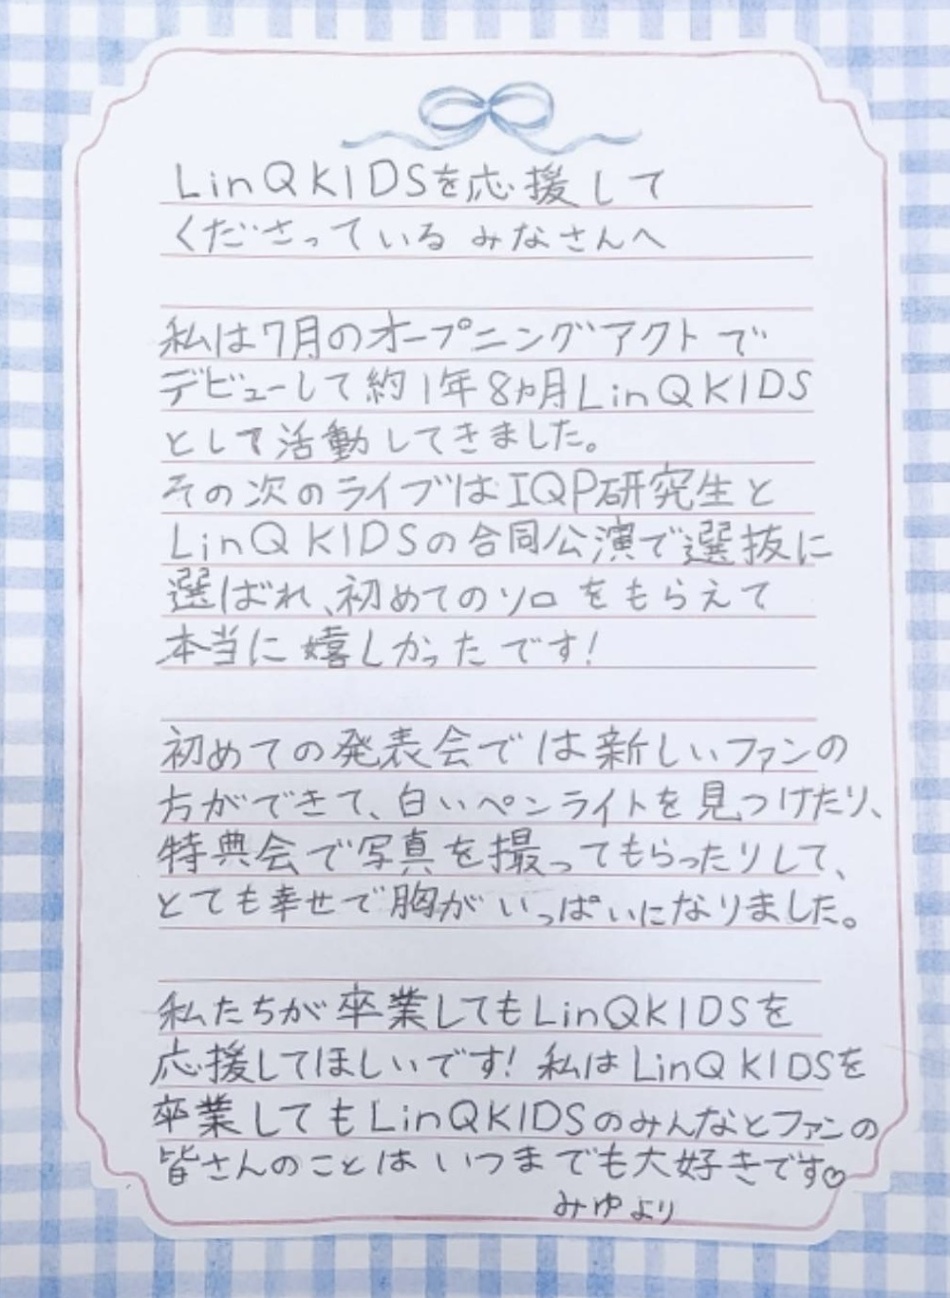 LinQKIDSを応援して
くださっている みなさんへ
私は7月のオープニングアクトで
デビューして約1年8ヵ月LinQKIDS
として活動してきました。
その次のライブはIQP研究生と
LinQKIDSの合同公演で選抜に
選ばれ、初めてのソロをもらえて
本当に嬉しかったです!
初めての発表会では新しいファンの
方ができて、白いペンライトを見つけたり、
特典会で写真を撮ってもらったりして、
とても幸せで胸がいっぱいになりました。
私たちが卒業してもLinQKIDSを
応援してほしいです! 私はLinQKIDSを
卒業してもLinQKIDSのみんなとファンの
皆さんのことはいつまでも大好きです♡
みゆより